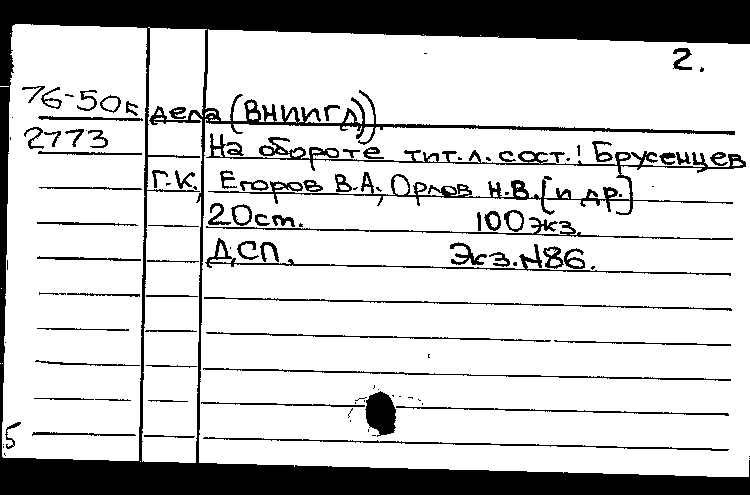 2.
76-50к дела (ВНИИГД)).
2773 На обороте тит.л. сост.: Брусенцев
Г.К., Егоров В.А., Орлов Н.В. [и др.]
20 ст. 100 экз.
ДСП. Экз. №86.
5